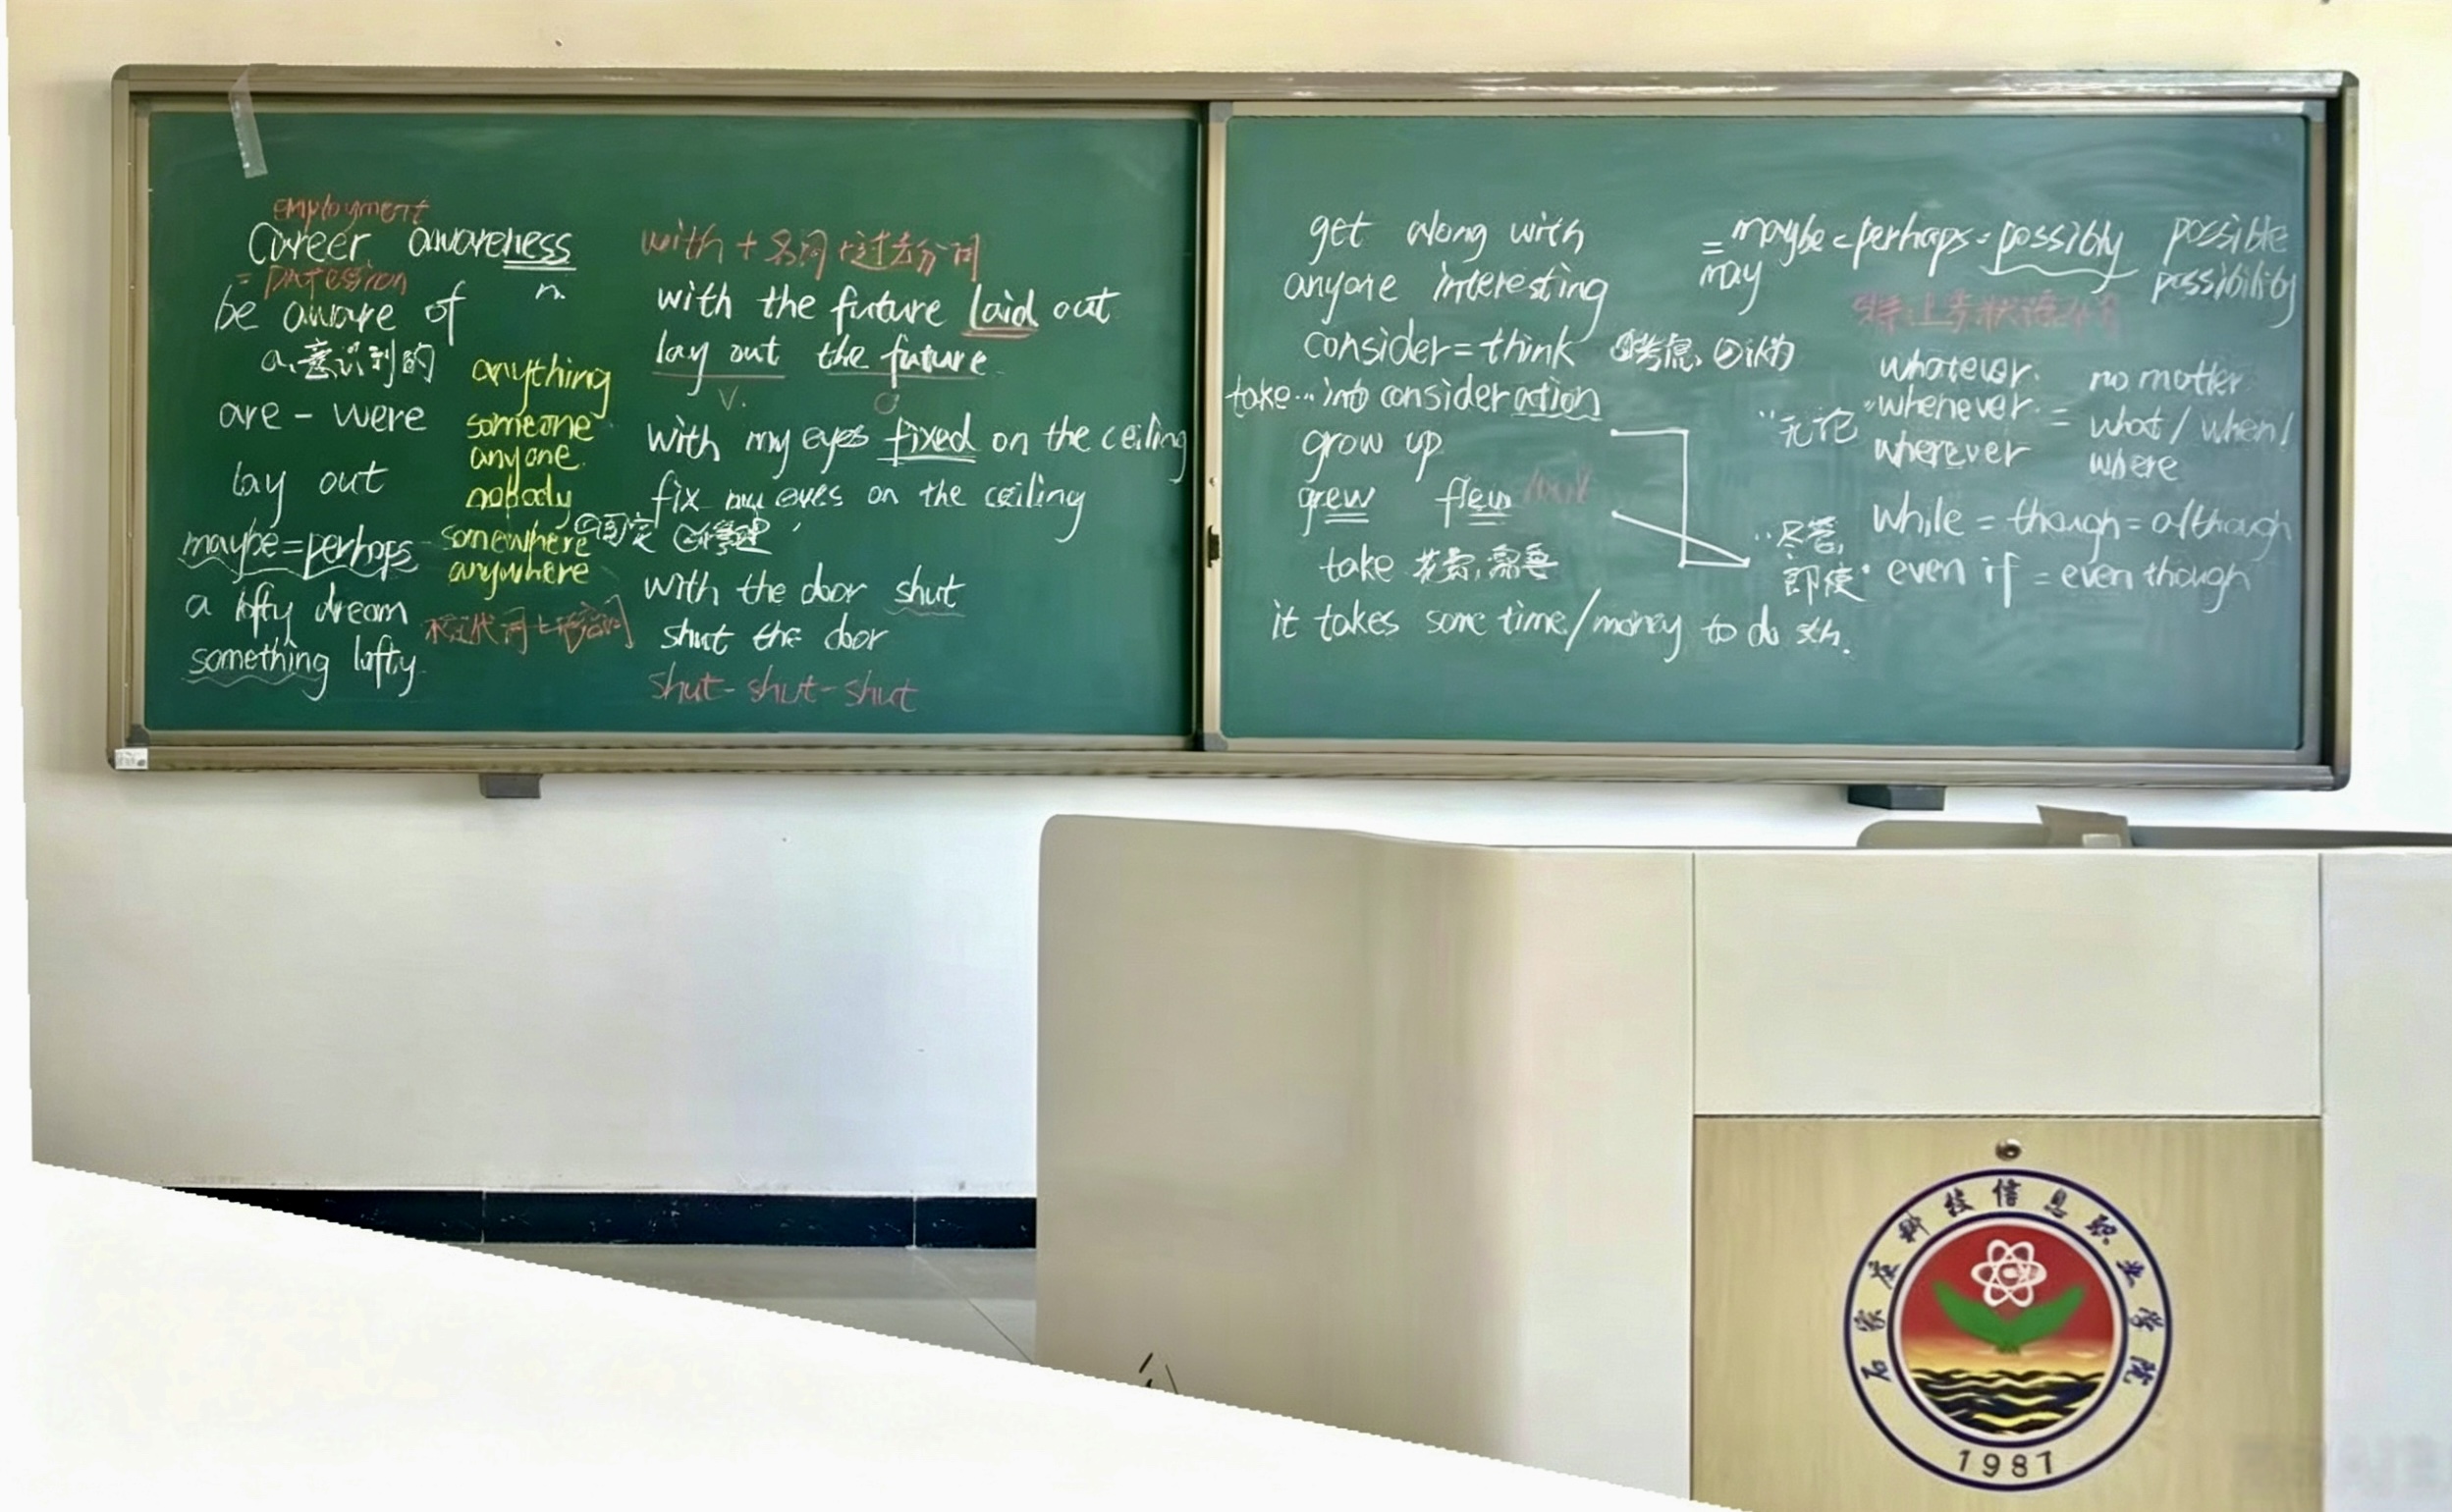 employment
Career awareness
= profession
n.
be aware of
a. 意识到的
are - were
lay out
maybe=perhaps
a lofty dream
something lofty
anything
someone
anyone
nobody
somewhere
anywhere
with + 名词 + 过去分词
with the future laid out
lay out the future
v. O
with my eyes fixed on the ceiling
fix my eyes on the ceiling
①固定
with the door shut
shut the door
shut - shut - shut
get along with
anyone interesting
consider = think ①考虑, ②认为
take ... into consideration
grow up
grew flew
take 花费, 需要
it takes some time/money to do sth.
= maybe = perhaps = possibly possible
may possibility
whatever
"无论" whenever = no matter what / when /
wherever where
"尽管, while = though = although
即使" even if = even though
石家庄科技信息职业学院
1987